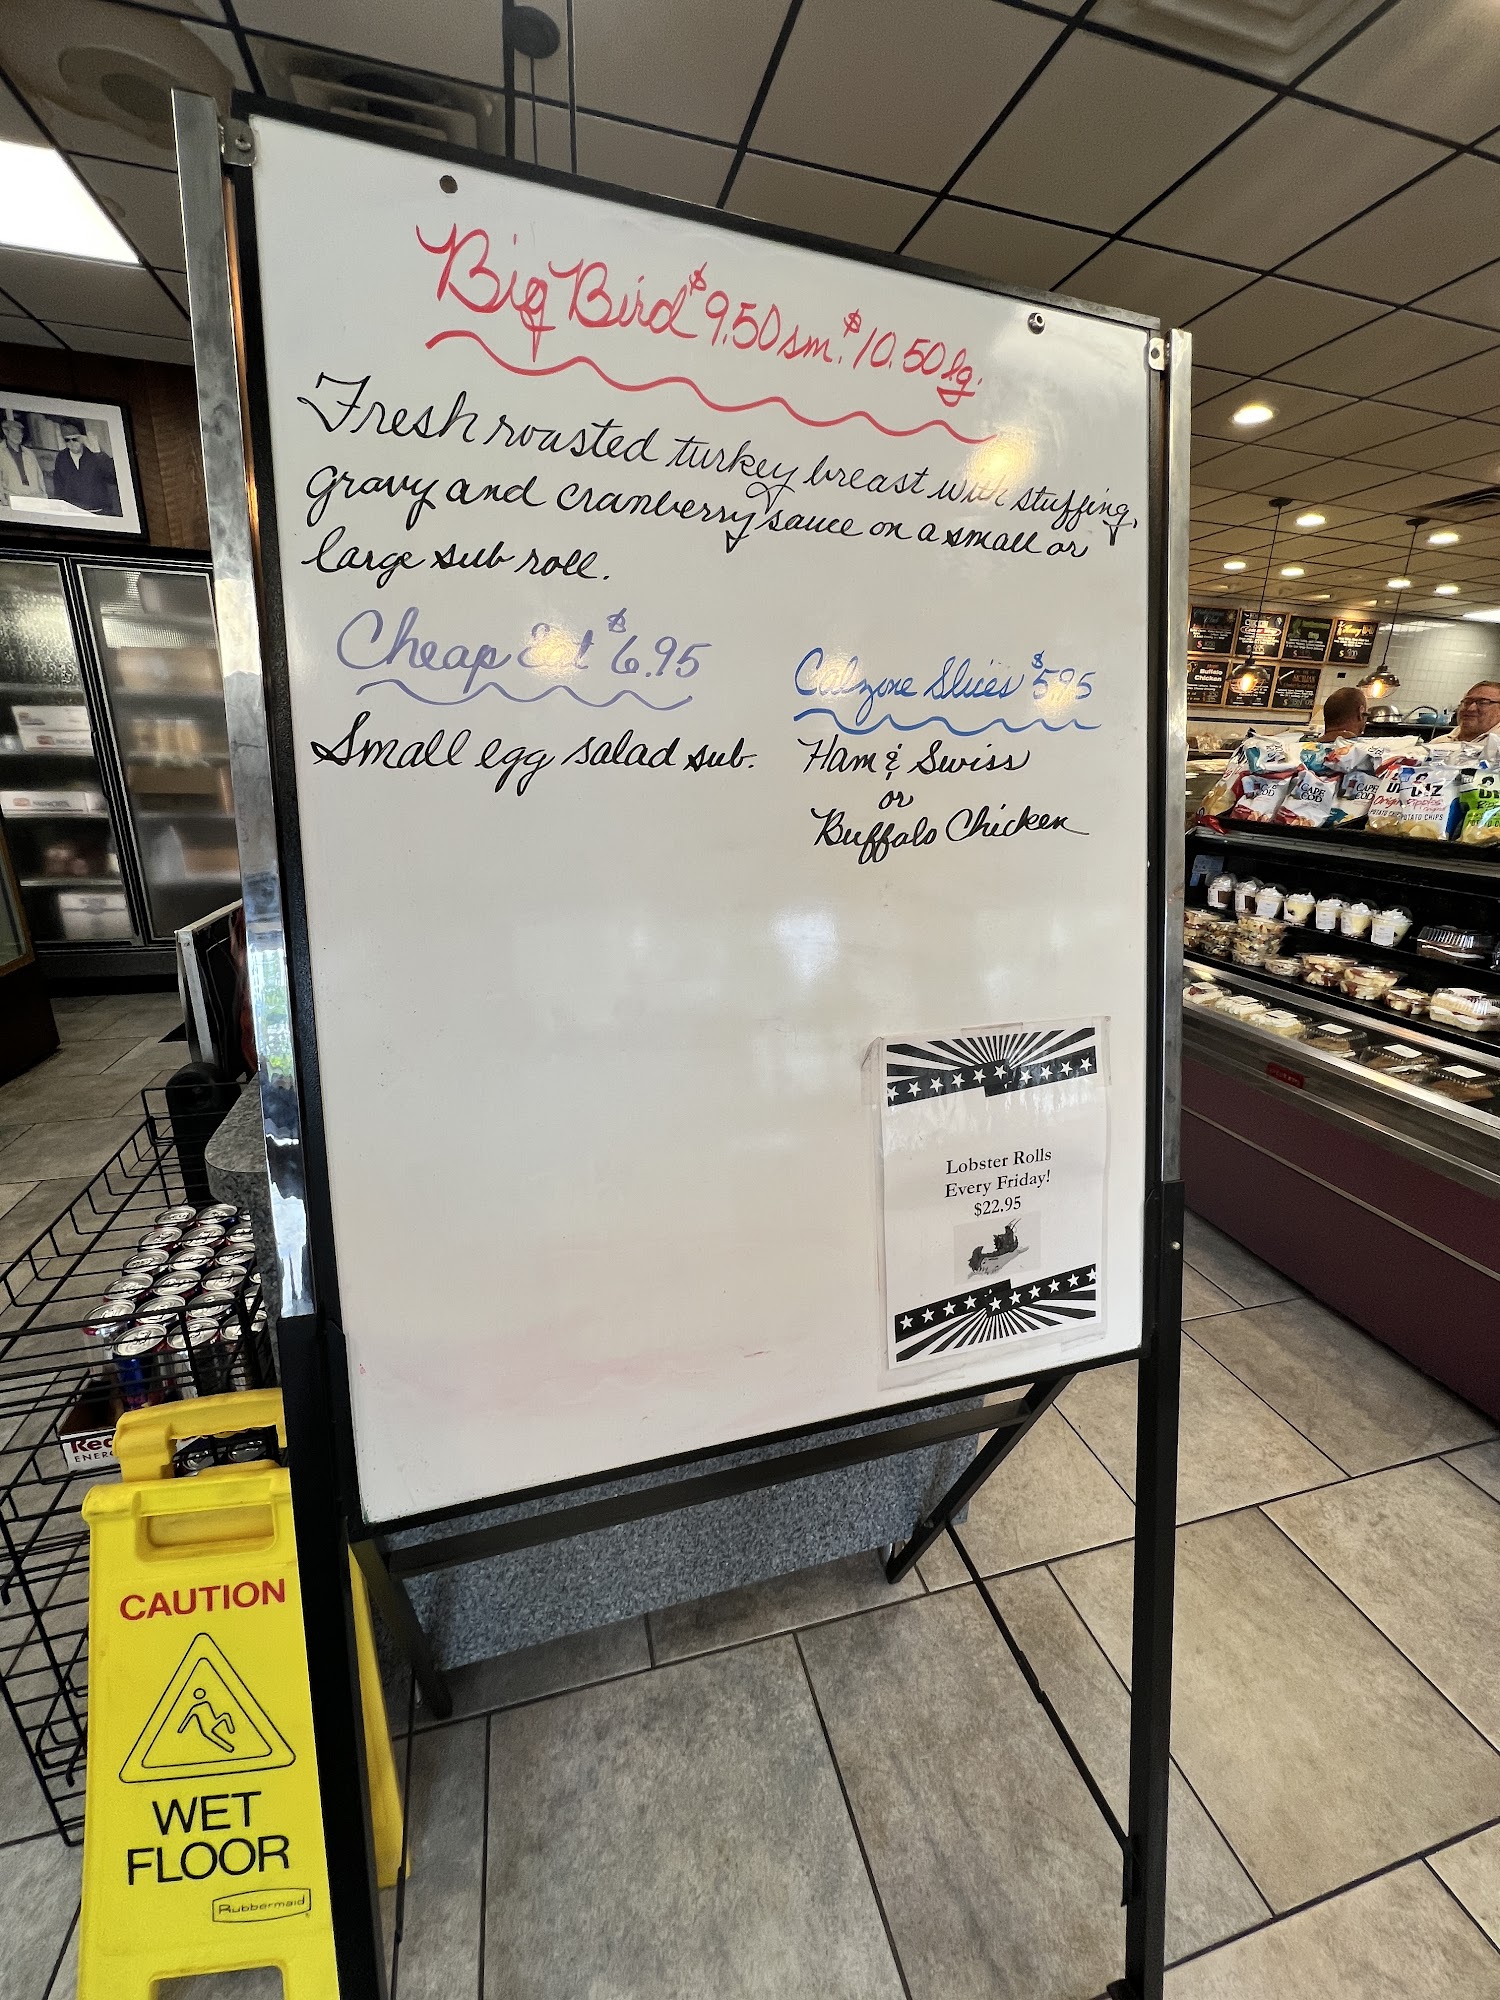 Big Bird $9.50 sm. $10.50 lg.
Fresh roasted turkey breast with stuffing,
gravy and cranberry sauce on a small or
large sub roll.
Cheap Eat $6.95
Small egg salad sub.
Calzone Slices $5.95
Ham & Swiss
or
Buffalo Chicken
Lobster Rolls
Every Friday!
$22.95
CAUTION
WET
FLOOR
Rubbermaid
Buffalo
Chicken
CAPE
COD
CAPE
COD
POTATO CHIPS